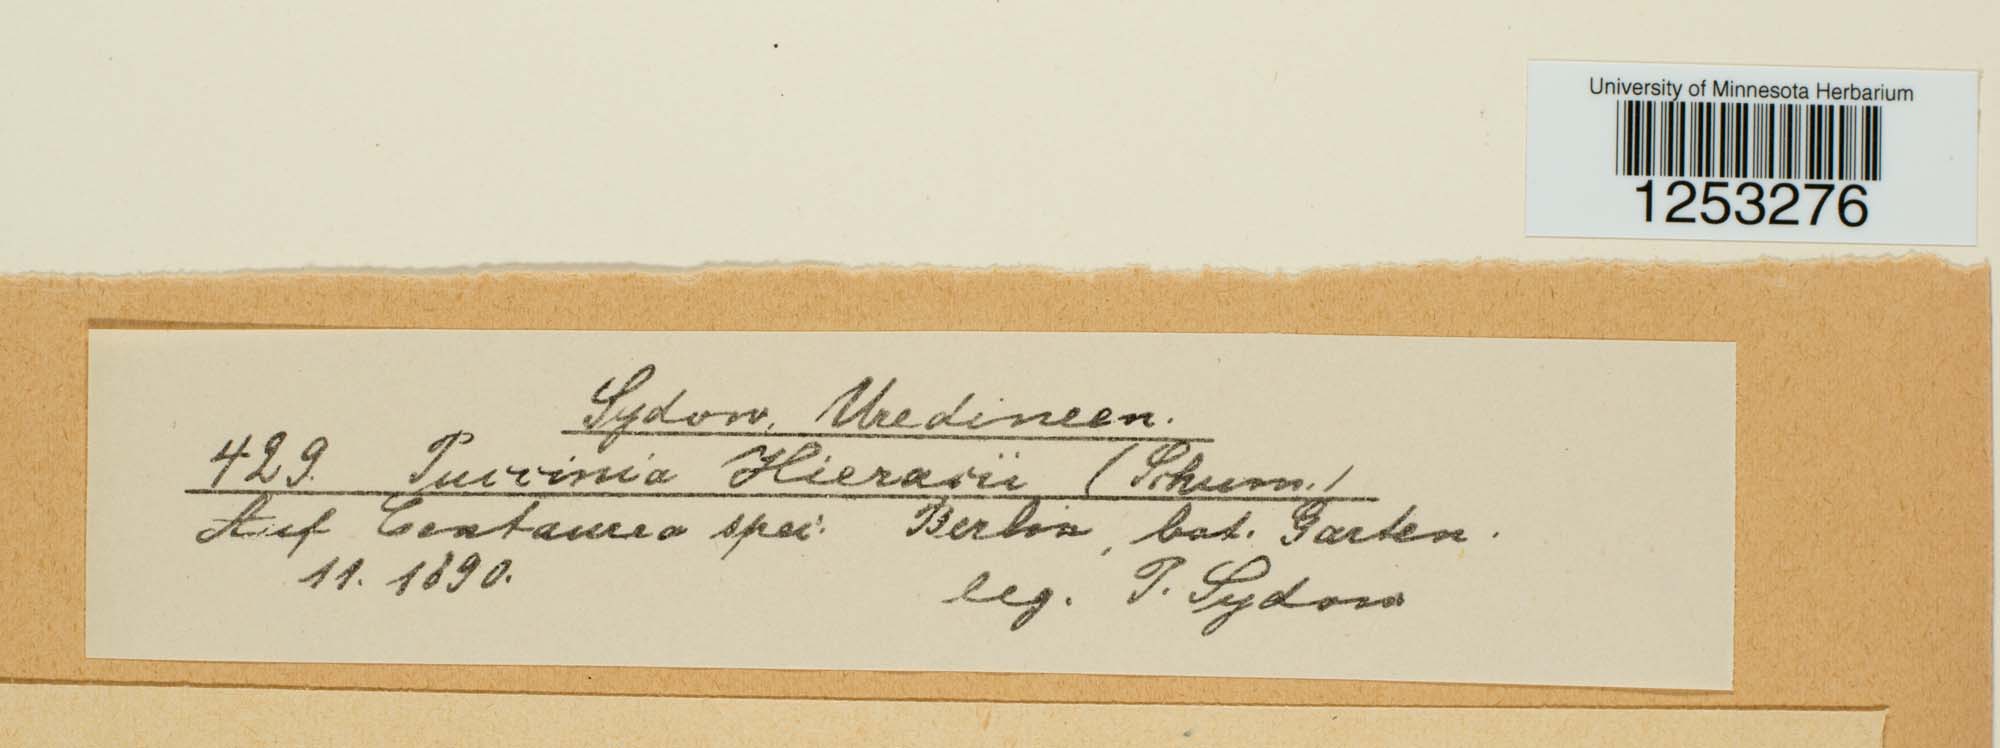 University of Minnesota Herbarium
1253276
Sydow, Uredineen.
429. Puccinia Hieracii (Schum.)
Auf Centaurea spec. Berlin, bot. Garten.
11. 1890.
leg. P. Sydow